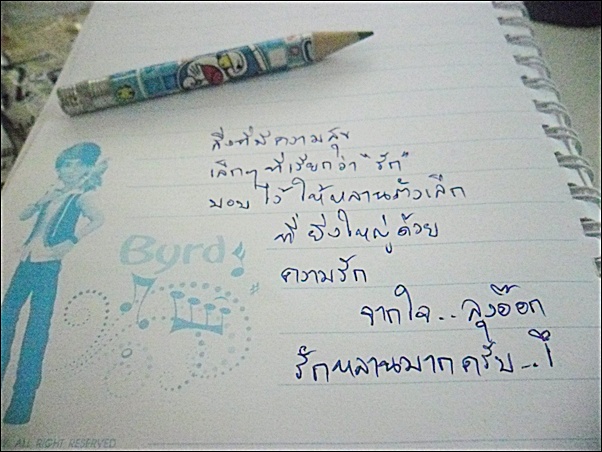 สิ่งที่มีความสุข
เล็กๆ ที่เรียกว่า "รัก"
มอบไว้ให้หลานตัวเล็ก
ที่ ยิ่งใหญ่ด้วย
ความรัก
จากใจ.. ลุงอ๊อก
รักหลานมากครับ...
Byrd
ALL RIGHT RESERVED